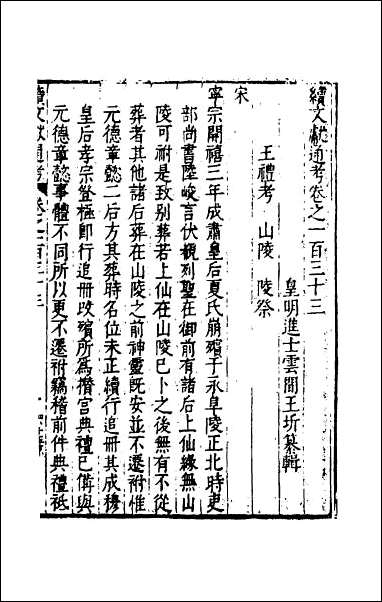 續文獻通考卷之一百三十三
皇明進士雲間王圻纂輯
王禮考 山陵 陵祭
宋
寧宗開禧三年成肅皇后夏氏崩殯于永阜陵正北時吏
部尚書陸峻言伏覩列聖在御前有諸后上仙緣無山
陵可祔是致别葬若上仙在山陵已卜之後無有不從
葬者其他諸后葬在山陵之前神靈既安並不遷祔惟
元德章懿二后方其葬時名位未正續行追冊其成穆
皇后孝宗登極即行追冊改殯所爲攢宮典禮已備與
元德章懿事體不同所以更不遷祔竊稽前件典禮祗
續文獻通考 卷之一百三十三